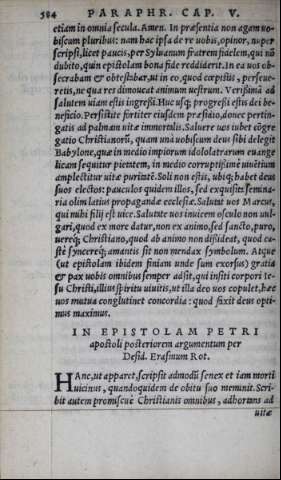 584 PARAPHR. CAP. V.
etiam in omnia secula. Amen. In præsentia non agam uo-
biscum pluribus: nam hæc ipsa de re uobis, opinor, nuper
scripsi, licet paucis, per Syluanum fratrem fidelem, qui nō
dubito, quin epistolam bona fide reddiderit. In ea uos ob-
secrabam & obtestabar, ut in eo, quod cœpistis, perseue-
retis, ne qua res dimoueat animum uestrum. Verißimā ad
salutem uiam estis ingreßi. Huc usq; progreßi estis dei be-
neficio. Persistite fortiter eiusdem præsidio, donec pertin-
gatis ad palmam uitæ immortalis. Saluere uos iubet cōgre
gatio Christianorū, quam unà uobiscum deus sibi delegit
Babylone, quæ in medio impiorum idololatrarum euange
licam sequitur pietatem, in medio corruptißimè uiuētium
amplectitur uitæ puritatē. Soli non estis, ubiq; habet deus
suos electos: pauculos quidem illos, sed exquisitæ semina-
ria olim latius propagandæ ecclesiæ. Salutat uos Marcus,
qui mihi filij est uice. Salutate uos inuicem osculo non uul-
gari, quod ex more datur, non ex animo, sed sancto, puro,
ueréq; Christiano, quod ab animo non dißideat, quod ca-
stè syncereq; amantis sit non mendax symbolum. Atque
(ut epistolam ibidem finiam unde sum exorsus) gratia
& pax uobis omnibus semper adsit, qui insiti corpori Ie-
su Christi, illius spiritu uiuitis, ut illa deo uos copulet, hæc
uos mutua conglutinet concordia: quod faxit deus opti-
mus maximus.
IN EPISTOLAM PETRI
apostoli posteriorem argumentum per
Desid. Erasmum Rot.
HAnc, ut apparet, scripsit admodū senex et iam morti
uicinus, quandoquidem de obitu suo meminit. Scri-
bit autem promiscuè Christianis omnibus, adhortans ad
uitæ